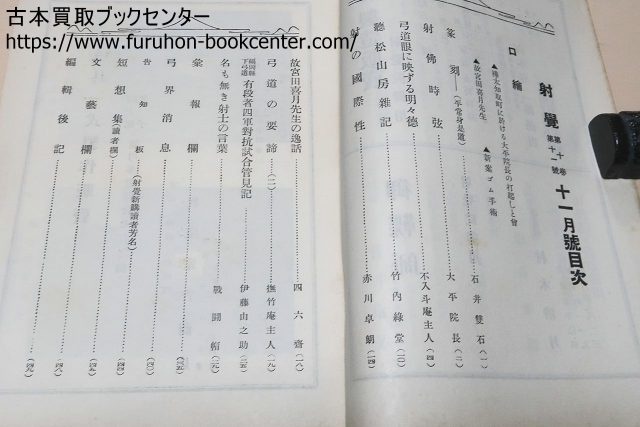 古本買取ブックセンター
https://www.furuhon-bookcenter.com/
射覺 第十卷 第十一號 十一月號目次
口繪
▲樺太知取町に於ける大平院長の打起しと會
▲故宮田喜月先生 ▲新案ゴム手術
篆刻(平常身是道) 石井雙石(一)
射佛時弦 大平院長(二)
弓道眼に映ずる明々德 不入斗庵主人(四)
聽松山房雜記 竹內綠堂(一〇)
射の國際性 赤川卓朗(一四)
故宮田喜月先生の逸話 四六齋(一八)
弓道の要諦(二) 撫竹庵主人(一九)
福岡縣下弓道有段者四軍對抗試合管見記 伊藤由之助(二五)
名も無き射士の言葉 戰鬪帽(二九)
彙報欄
弓界消息(三五)
告知板(射覺新購讀者芳名)
短想集(讀者欄)
文藝欄(四八)
編輯後記(四九)